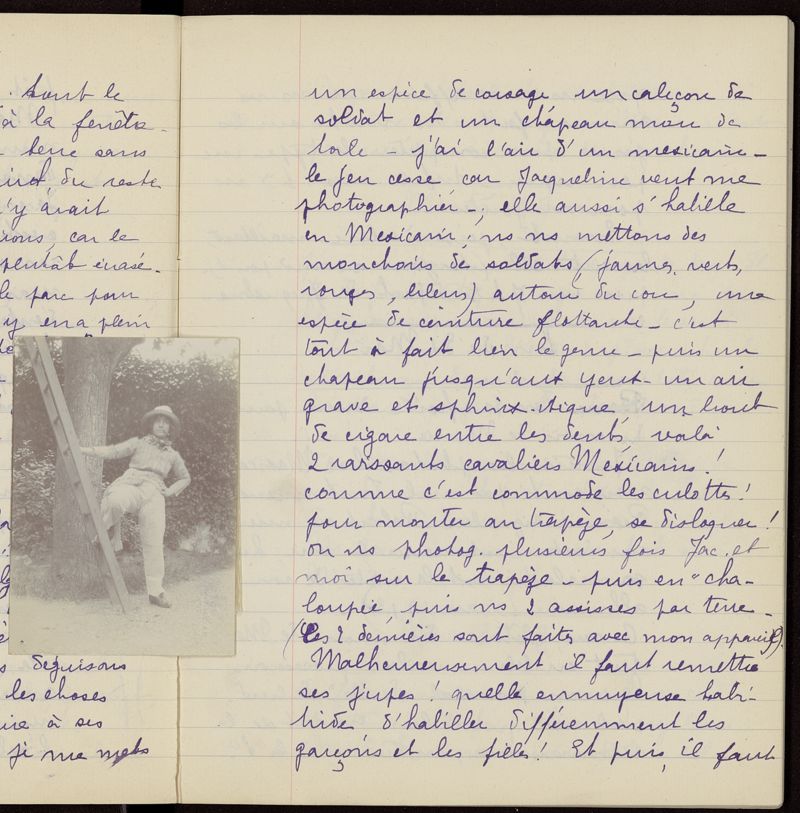 . Sont le
à la fenêtre.
terre sans
du reste
n'y avait
rions, car le
plutôt évasé.
le parc pour
y en a plein
déguisons
les choses
à ses
je me mets
un espèce de corsage un caleçon de
soldat et un chápeau mou de
toile – j'ai l'air d'un mexicain –
le jeu cesse car Jacqueline veut me
photographier –; elle aussi s'habille
en Mexicain; ns ns mettons des
mouchoirs de soldats (jaunes, verts,
rouges, bleus) autour du cou, une
espèce de ceinture flottante – c'est
tout à fait bien le genre – puis un
chapeau jusqu'aux yeux – un air
grave et sphinx-tique, un bout
de cigare entre les dents, voilà
2 ravissants cavaliers Mexicains!
comme c'est commode les culottes!
pour monter au trapèze, se disloquer!
on ns photog. plusieurs fois Jac. et
moi sur le trapèze – puis en "cha-
loupée, puis ns 2 assises par terre –
(les 2 dernières sont faites avec mon appareil).
Malheureusement il faut remettre
ses jupes! quelle ennuyeuse habi-
tude d'habiller différemment les
garçons et les filles! Et puis, il faut